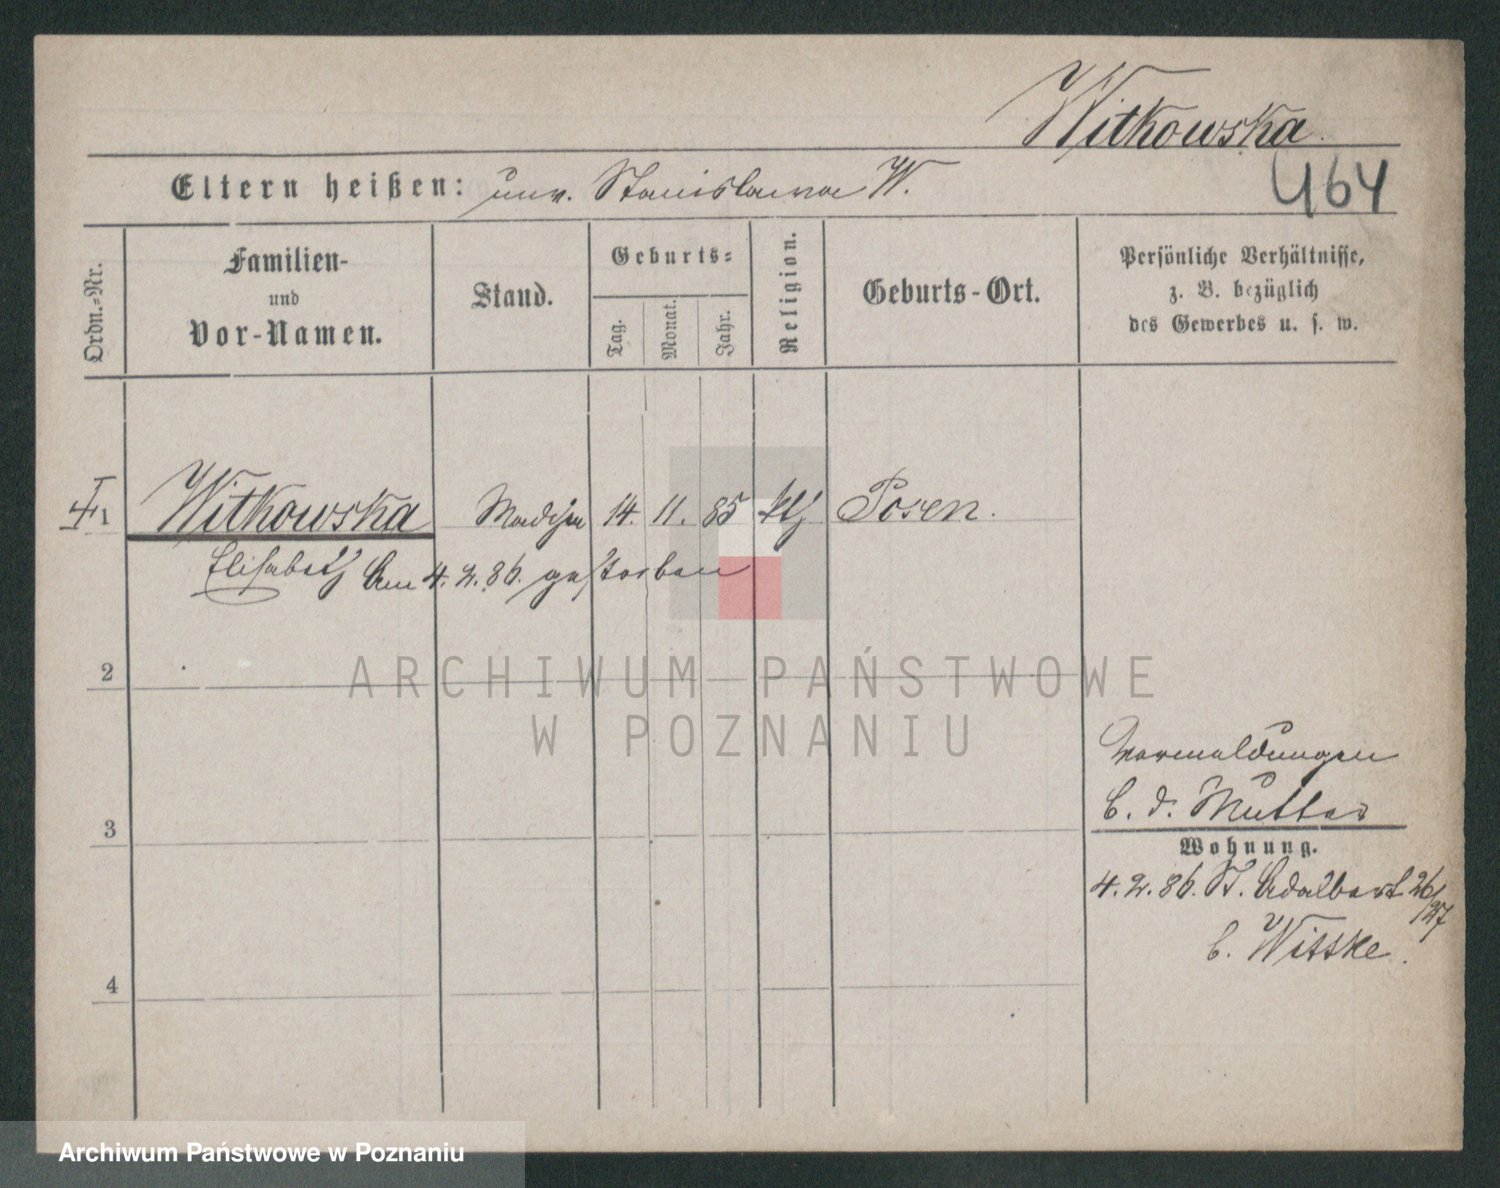 Witkowska.
464
Eltern heißen: unv. Stanislawa W.
Ordn.-Nr.
Familien-
und
Vor-Namen.
Stand.
Geburts-
Tag.
Monat.
Jahr.
Religion.
Geburts-Ort.
Persönliche Verhältnisse,
z. B. bezüglich
des Gewerbes u. s. w.
1 Witkowska Mädchen 14. 11. 85 kth Posen.
Elisabeth Am 4. 2. 86. gestorben
2
3
4
ARCHIWUM PAŃSTWOWE
W POZNANIU
Vermeldungen
b. d. Mutter
Wohnung.
4. 2. 86. St. Adalbert 26/27
b. Wittke.
Archiwum Państwowe w Poznaniu